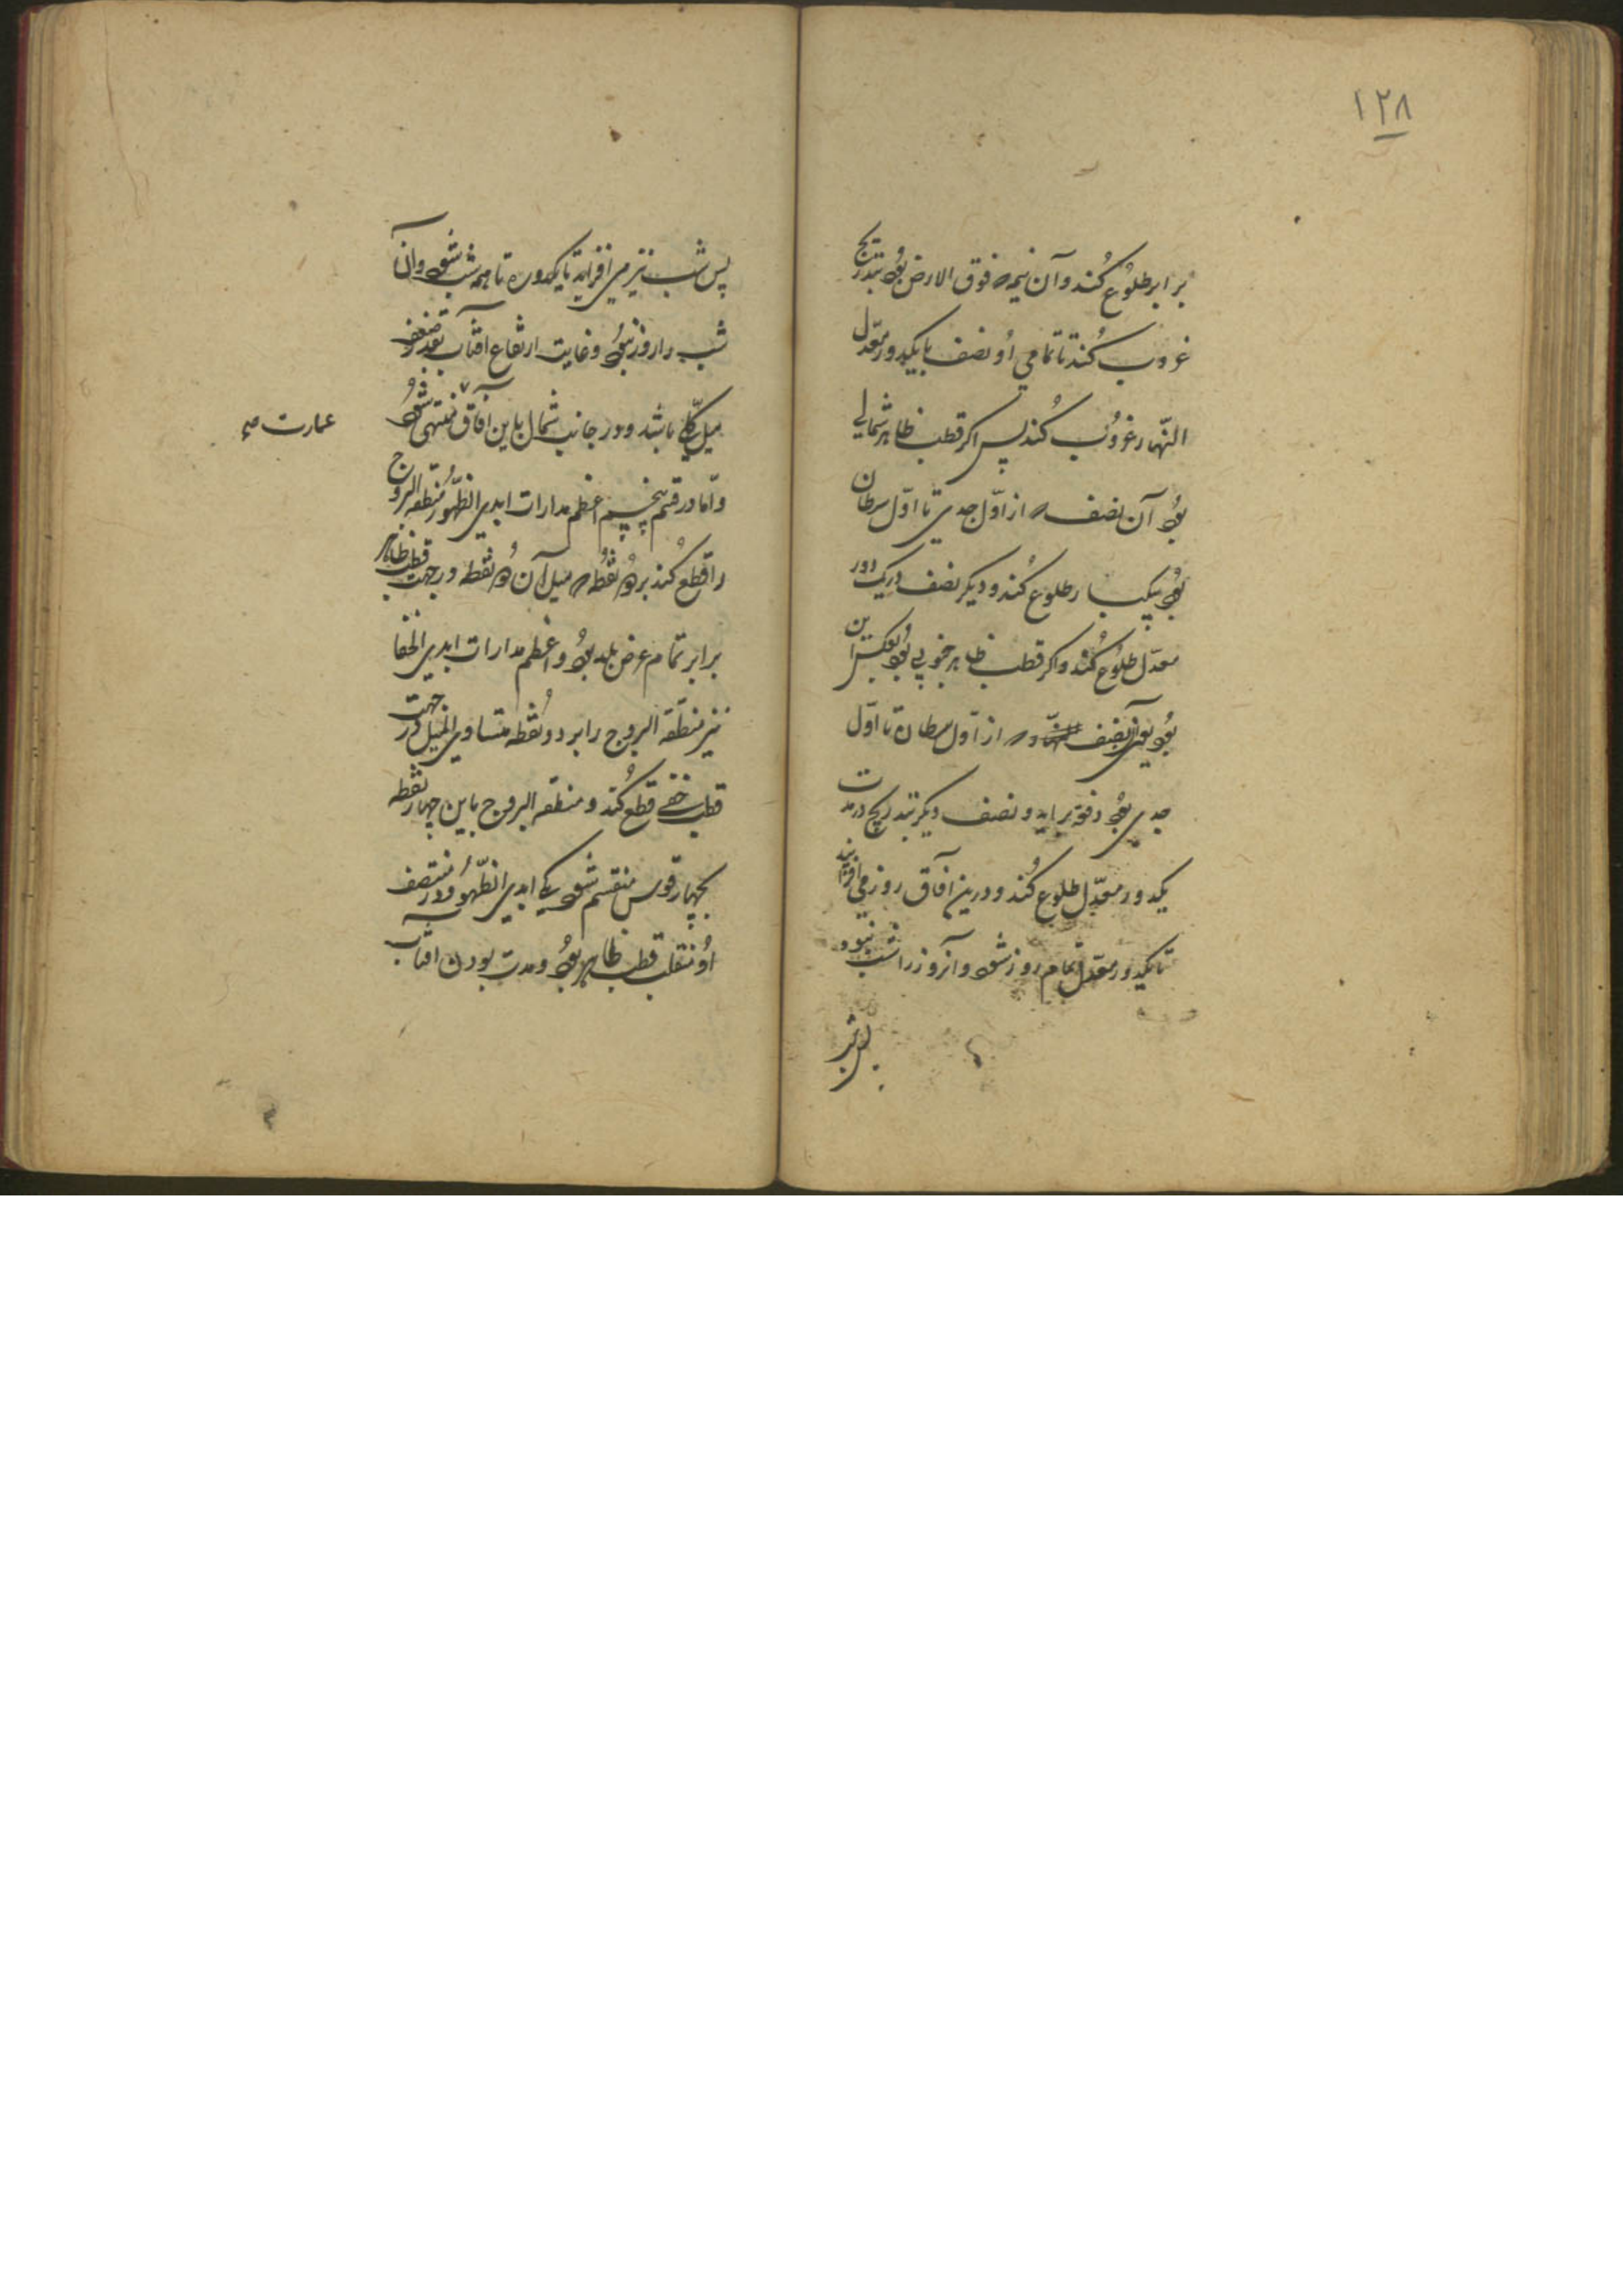 ۱۲۸
برابر طلوع کند و آن نیمه فوق الارض بود بتدریج
غروب کند تا تمامی او نصف با یکدور معدل
النهار غروب کند پس اکر قطب ظاهر شمالی
بود آن نصف از اول جدی تا اول سرطان
بود بیکبار طلوع کند و دیکر نصف در یک دور
معدل طلوع کند و اکر قطب ظاهر جنوبی بود بعکس این
بود یعنی آن نصف از اول سرطان تا اول
جدی بود دفعة براید و نصف دیکر بتدریج در مدت
یکدور معدل طلوع کند و درین آفاق روز می افزاید
تا یکدور معدل تمام روز شود و آنروز را شب نبود
پس شب
پس شب نیز می افزاید تا یکدوره تا همه شب شود و آن
شب را روز نبود و غایت ارتفاع آفتاب بقدر ضعف
میل کلی باشد و در جانب شمال باین آفاق منتهی شود
عمارت صح
و اما در قسم پنجم اعظم مدارات ابدی الظهور منطقه البروج
را قطع کند بر دو نقطه میل آن دو نقطه در جهت قطب ظاهر
برابر تمام عرض بلد بود و اعظم مدارات ابدی الخفا
نیز منطقه البروج را بر دو نقطه متساوی المیل در جهت
قطب خفی قطع کند و منطقه البروج باین چهار نقطه
بچهار قوس منقسم شود یکی ابدی الظهور و در منتصف
او منقلب قطب ظاهر بود و مدت بودن آفتاب